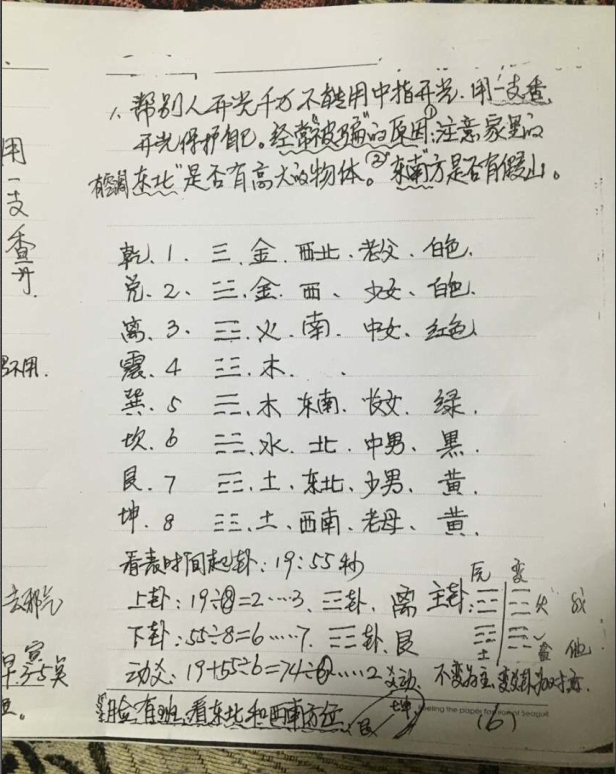 用
一
支
香
开.
不用.
去邪气
早 寅 3-5点
1、帮别人开光千万不能用中指开光.用一支香
开光保护自己。经常“被骗”的原因:①注意家里的
房间“东北”是否有高大的物体。②“东南”方是否有假山。
乾、1. ☰.金.西北、老父、白色.
兑.2、☱.金.西、少女、白色.
离、3、☲、火、南.中女、红色
震、4 ☳、木、
巽、5 ☴、木 东南.长女.绿.
坎、6 ☵、水.北.中男、黑.
艮、7 ☶、土、东北、少男、黄.
坤、8 ☷、土、西南、老母、黄.
看表时间起卦:19:55秒
上卦:19÷8=2……3、☲卦、离
下卦:55÷8=6……7、☶卦、艮
动爻:19+55÷6=74÷6……2爻动
脸有斑、看东北和西南方位
艮 坤
主卦:
火
土
他
不变为主,变卦为对方.
the paper
Seagull
(6)